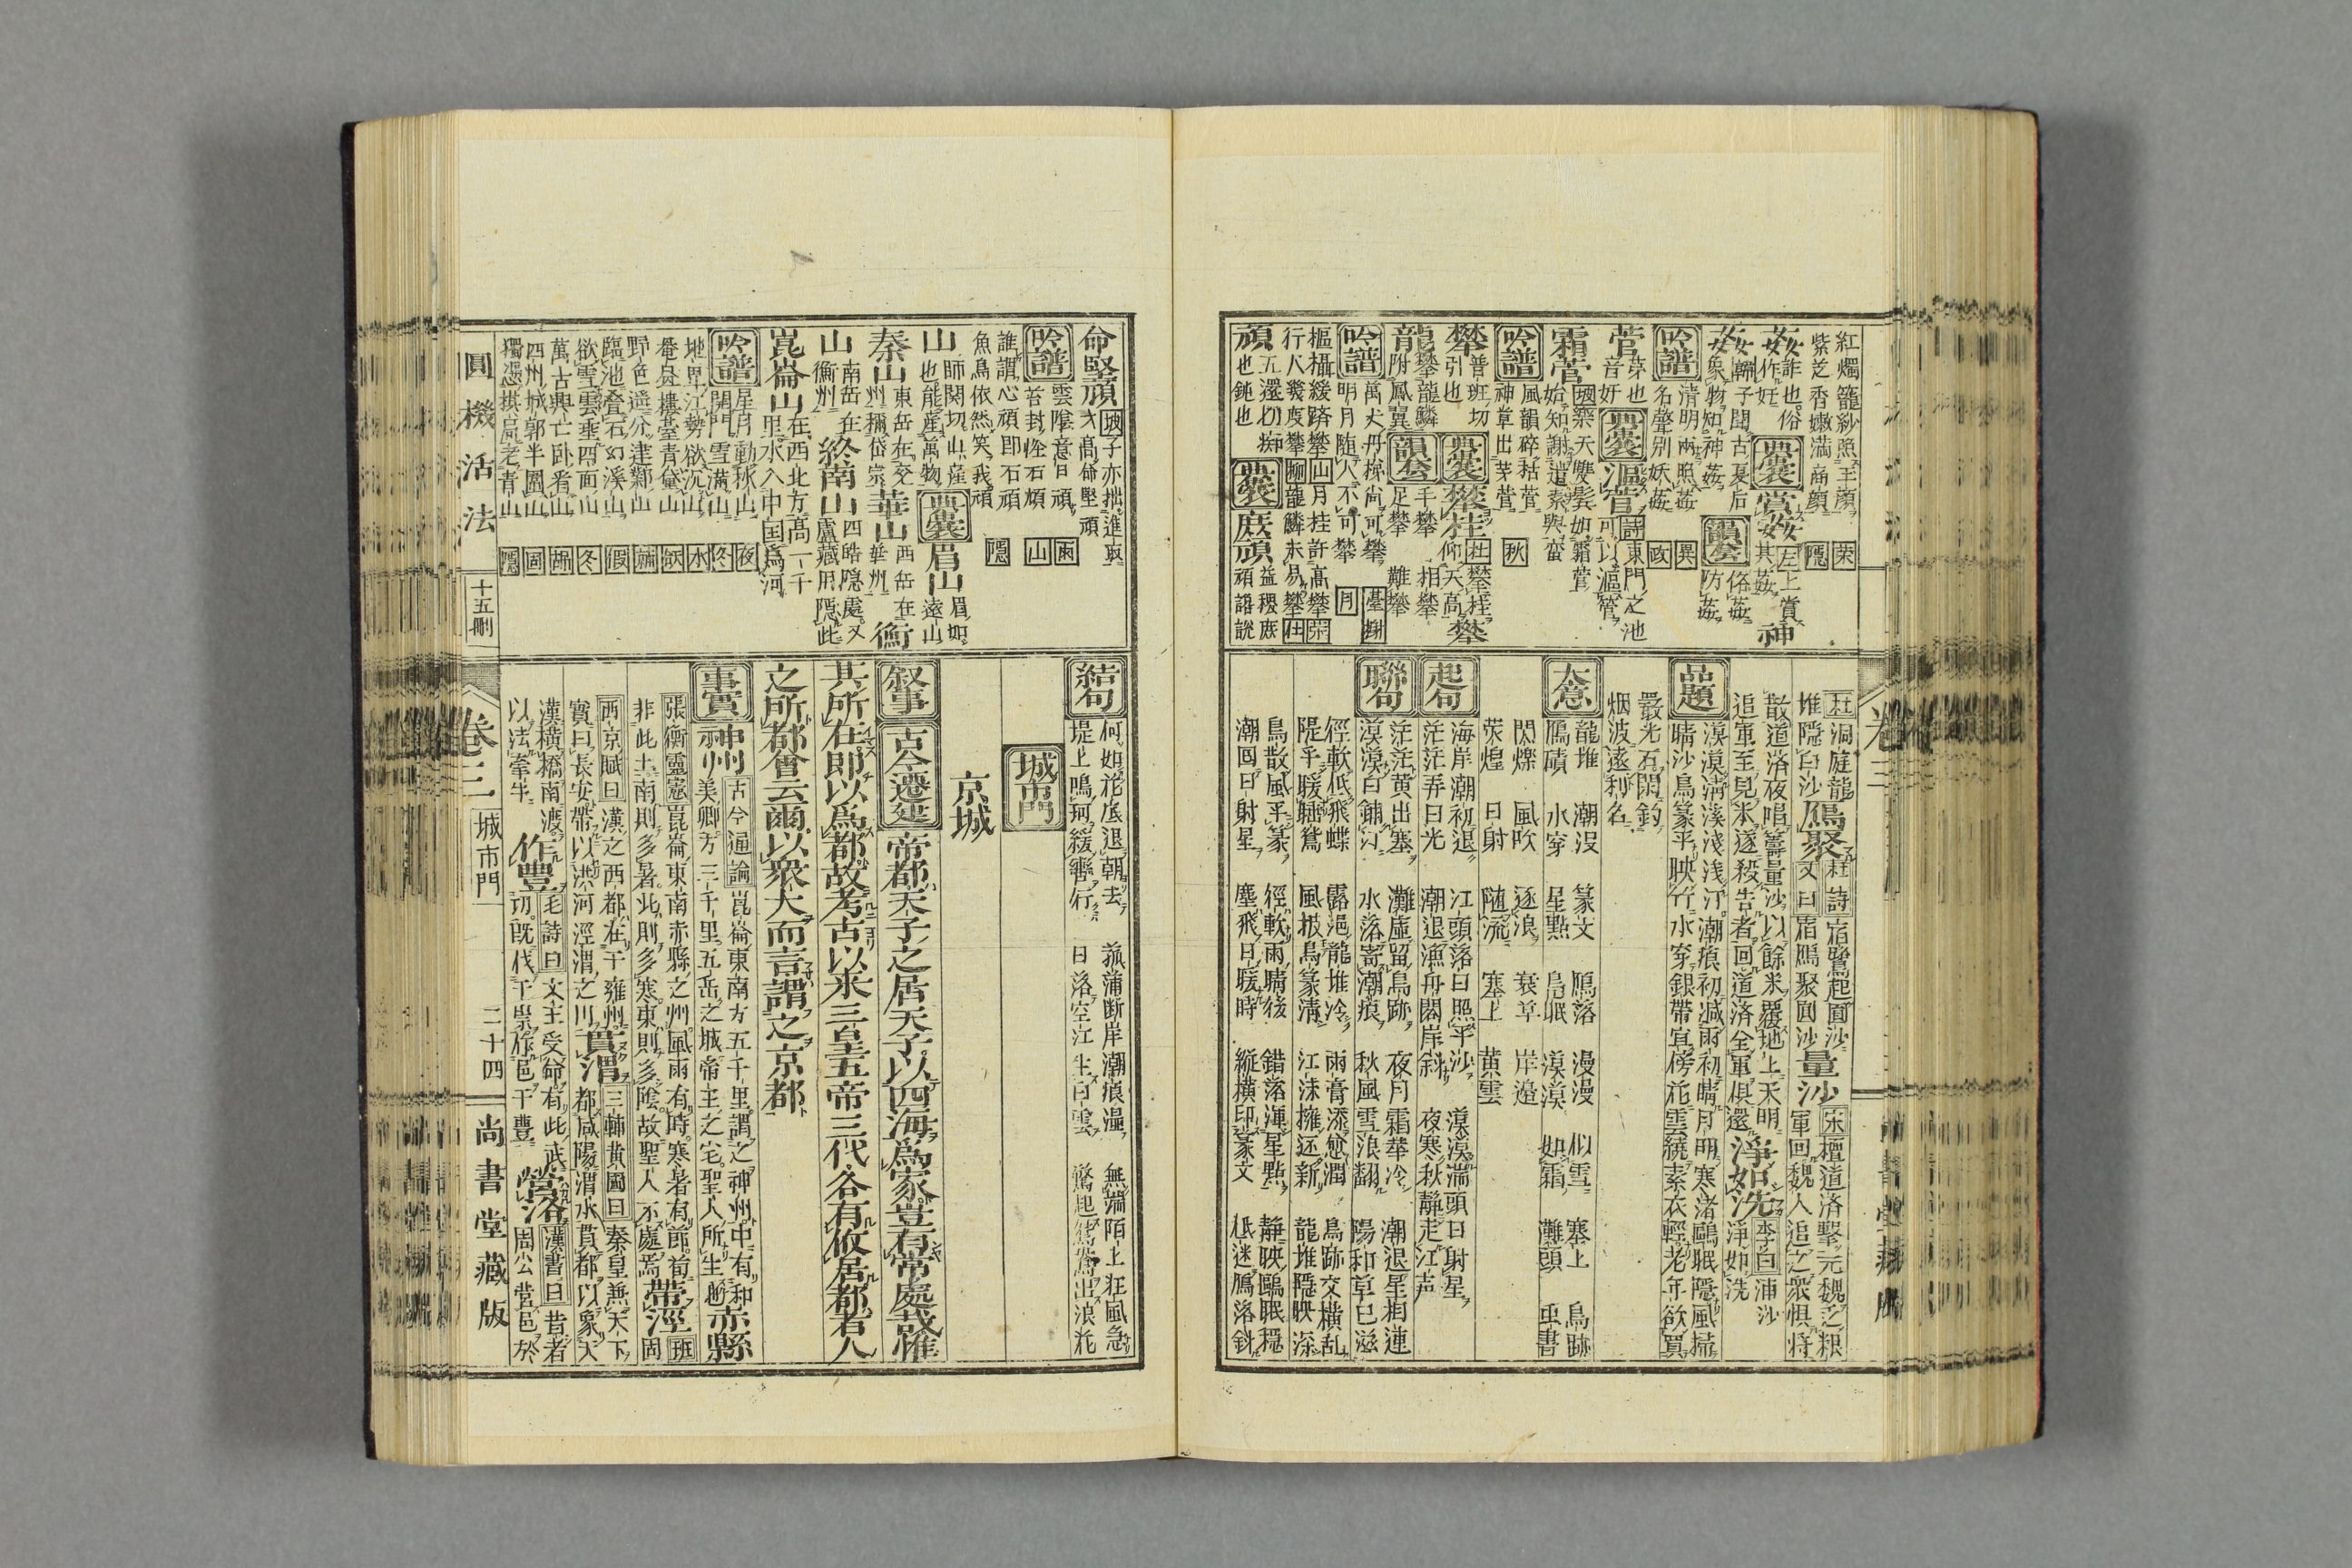 紅燭籠紗照玉顏 榮
紫芝香嫩滿商顏 隱
姦 詐也俗
作奸 典囊 賞姦 左上賞
其姦 神
姦 韓子聞古夏后
象物知神姦 韻套 俗姦
防姦
吟譜 清明兩照姦 異
名聲別妖姦 政
菅 茅也
音奸 典囊 漚菅 詩東門之池
可以漚菅
霜菅
吟譜 風韻碎秸菅 秋
神草出茅菅
攀 普班切
引也 典囊 攀桂 杜攀桂
仰天高 攀
龍 攀龍鱗
附鳳翼 韻套 千攀 相攀
足攀 難攀
吟譜 萬丈丹梯尚可攀 臺榭
明月随人不可攀 月
樞攝緩躋攀 山 月桂許高攀 榮
行人幾度攀 柳 龍鱗未易攀 仕
頑 五還切痴
也鈍也 典囊 庶頑 益稷庶
頑讒說
杜 洞庭龍
堆隱白沙 鴈聚 杜詩 宿鷺起圓沙
又曰 宿鴈聚圓沙 量沙 宋檀道済擊元魏乏粮
軍回魏人追之衆惧将
散道済夜唱籌量沙以餘米覆地上天明
追軍至見米遂殺告者回道済全軍俱還 淨如洗 李白 浦沙
淨如洗
品題 漠漠淸溪淺淺汀潮痕初減雨初晴月明寒渚鷗眠隱風掃
晴沙鳥篆平映竹水穿銀帶宜傍花雲繞素衣輕老年欲買
磯光石閑釣
烟波遠利名
大意 龍堆 潮沒 篆文 鴈落 漫漫 似雪 塞上 鳥跡
鴈磧 水穿 星點 鳥眠 漠漠 如霜 灘頭 虫書
閃爍 風吹 逐浪 衰草 岸邉
荧煌 日射 随流 塞上 黄雲
起句 海岸潮初退 江頭落日照平沙 漠漠湍頭日射星
茫茫弄日光 潮退漁舟閣岸斜 夜寒秋靜走江声
聯句 茫茫黄出塞 灘虛留鳥跡 夜月霜華冷 潮退星相連
漠漠白鋪汀 水落寄潮痕 秋風雪浪翻 陽和草已滋
徑軟低飛蝶 露浥龍堆冷 雨膏添愈潤 鳥跡交橫乱
隄平暖睡鴛 風披鳥篆淸 江沫擁還新 龍堆隱映深
鳥散風平篆 徑軟雨晴後 錯落渾星點 靜映鷗眠穏
潮囘日射星 塵飛日暖時 縱横印篆文 低迷鴈落斜
命堅頑
吟譜 雲陰意日頑 雨
苔封怪石頑 山
誰謂心頑即石頑 隱
魚鳥依然笑我頑
山 師閑切山產
也能産萬物 典囊 眉山 眉如
遠山
泰山 東岳在兗
州稱岱宗 華山 西岳在
華州 衡
山 南岳在
衡州 終南山 四皓隱處又
盧藏用隱此
崑崙山 在西北方高一千
里水入中国為河
吟譜 星月動秋山 夜
閉門雪滿山 冬
地卑江勢欲沉山 水
卷身樓臺青黛山
野色遥分建鄴山
臨池叠石幻溪山 假
欲雪雲垂四面山 冬
萬古興亡卧看山
四州城郭半圍山
獨憑棋局老青山 隱
結句 何如花底退朝去 菰蒲断岸潮痕湿 無端陌上狂風急
堤上鳴珂緩轡行 日落空江生白雲 驚起鴛鴦出浪花
城市門
京城
叙事 古今遷建 帝都天子之居天子以四海爲家豈有常處哉惟
其所在即以爲都故考古以来三皇五帝三代各有攸居都者人
之所都會云爾以衆大而言謂之京都
事實 神州 古今通論 崑崙東南方五千里謂之神州中有和
美卿方三千里五岳之城帝王之宅聖人所生也 赤縣
張衡靈憲 崑崙東南赤縣之州風雨有時寒暑有節苟
非此土南則多暑北則多寒東則多陰故聖人不處焉 帶涇 班
固
西京賦曰 漢之西都在于雍州
實曰長安帶以洪河涇渭之川 貫渭 三輔黄圖曰 秦皇兼天下
都咸陽渭水貫都以象天
漢橫橋南渡
以法牽牛 作豐 毛詩曰 文王受命有此武
功既伐于崇作邑于豊 營洛 漢書曰 昔者
周公営邑於
圓機活法
十五刪
卷三 城市門 二十四
尚書堂藏版